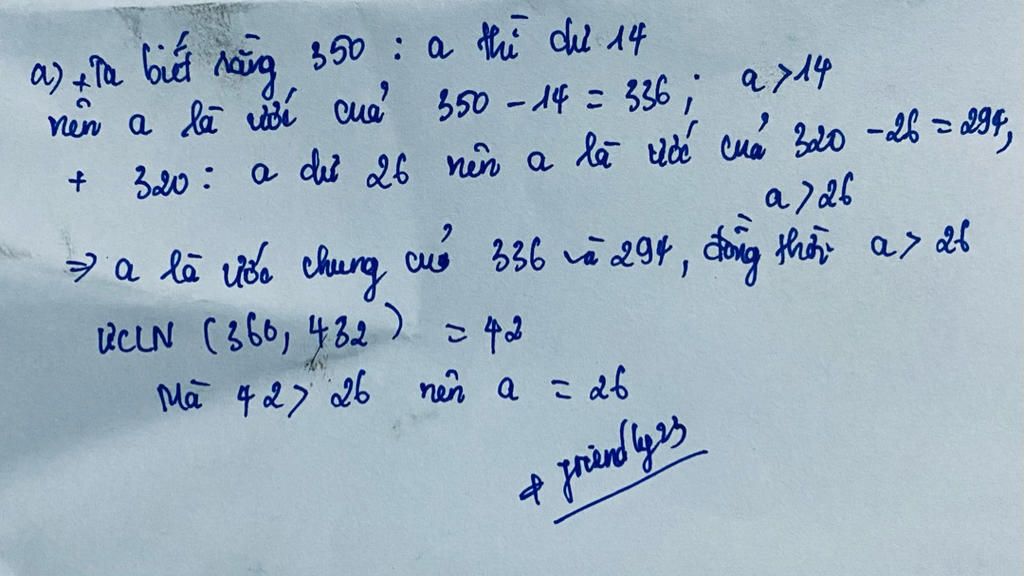 a) + Ta biết rằng 350 : a thì dư 14
nên a là ước của 350 - 14 = 336 ; a > 14
+ 320 : a dư 26 nên a là ước của 320 - 26 = 294,
a > 26
=> a là ước chung của 336 và 294, đồng thời a > 26
ƯCLN (360, 432) = 42
Mà 42 > 26 nên a = 26
* friendly23